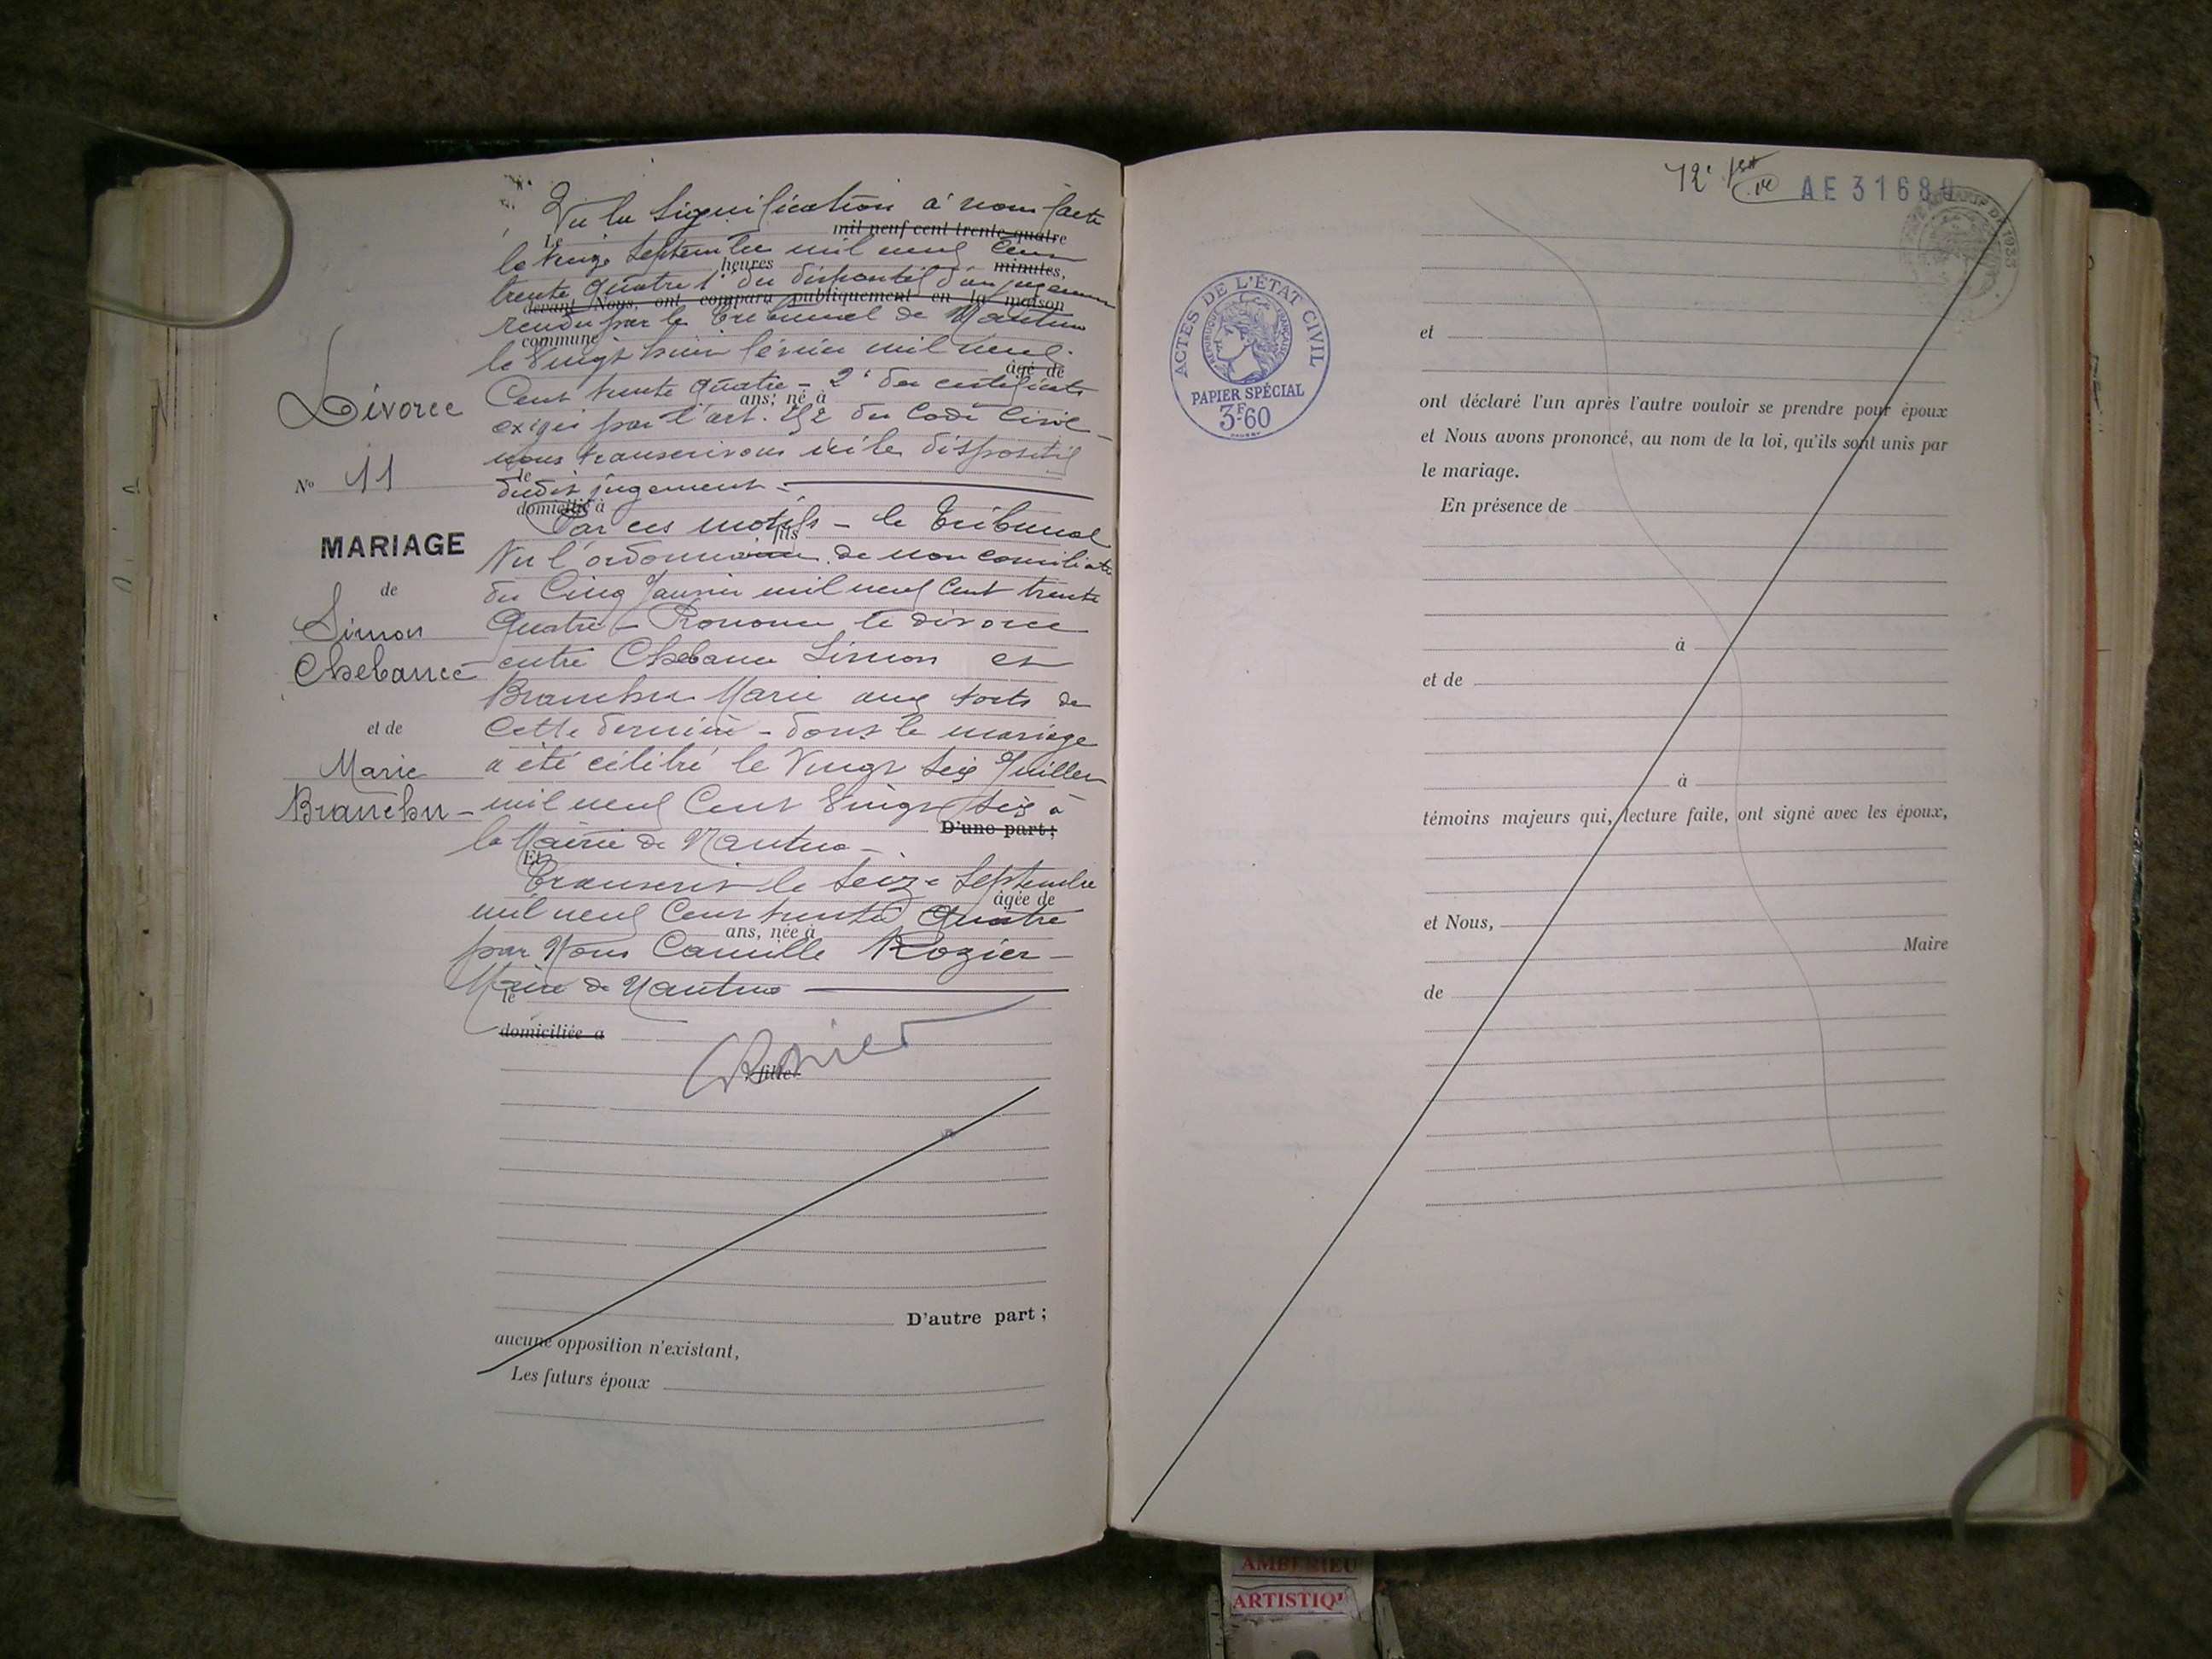 Divorce
N° 11
MARIAGE
de
Simon
Chebance
et de
Marie
Branchu
Vu la signification à nous faite
Le mil neuf cent trente-quatre
le Septembre mil neuf Cent
heures minutes,
trente quatre 1° du dispositif d'un jugement
devant Nous, ont comparu publiquement en la maison
rendu par le Tribunal de Nantua
commune
le Vingt huit février mil neuf
âgé de
Cent trente quatre - 2° des certificats
ans; né à
exigés par l'art. 252 du Code Civil -
nous transcrivons ici le dispositif
le
dudit jugement -
domicilié à
Par ces motifs - le Tribunal
fils
Vu l'ordonnance de non conciliation
du Cinq Janvier mil neuf Cent trente
Quatre - Prononce le divorce
entre Chebance Simon et
Branchu Marie aux torts de
Cette dernière - dont le mariage
a été célébré le Vingt six Juillet
mil neuf Cent Vingt six à
D'une part;
la Mairie de Nantua -
Et
Transcrit le Seize Septembre
âgée de
mil neuf Cent trente Quatre
ans, née à
par Nous Camille Rozier -
Maire de Nantua
le
domiciliée à
fille
D'autre part;
aucune opposition n'existant,
Les futurs époux
12e
AE 3168
ACTES DE L'ÉTAT CIVIL
RÉPUBLIQUE FRANÇAISE
PAPIER SPÉCIAL
3F60
et
ont déclaré l'un après l'autre vouloir se prendre pour époux
et Nous avons prononcé, au nom de la loi, qu'ils sont unis par
le mariage.
En présence de
à
et de
à
témoins majeurs qui, lecture faite, ont signé avec les époux,
et Nous,
Maire
de
AMBERIEU
ARTISTIQ